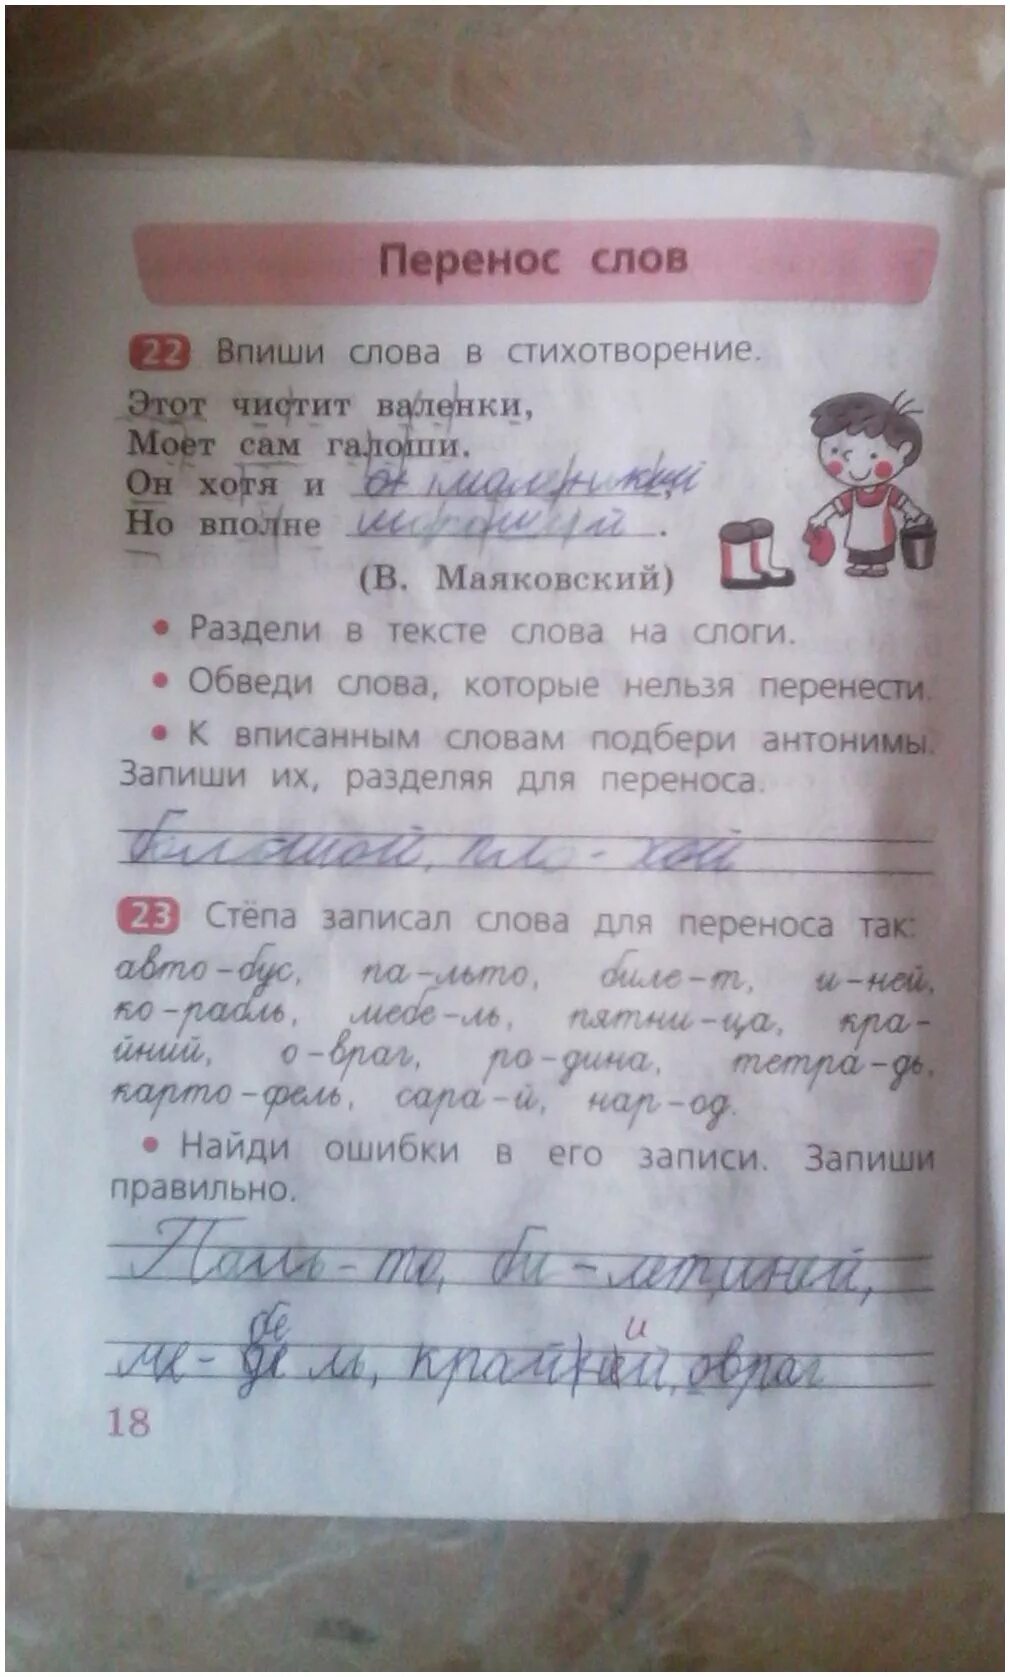 Перенос слов
22 Впиши слова в стихотворение.
Этот чистит валенки,
Моет сам галоши.
Он хотя и маленький
Но вполне .
(В. Маяковский)
• Раздели в тексте слова на слоги.
• Обведи слова, которые нельзя перенести.
• К вписанным словам подбери антонимы.
Запиши их, разделяя для переноса.
большой, пло-хой
23 Стёпа записал слова для переноса так:
авто-бус, па-льто, биле-т, и-ней,
ко-рабль, мебе-ль, пятни-ца, кра-
йний, о-враг, ро-дина, тетра-дь,
карто-фель, сара-й, нар-од.
• Найди ошибки в его записи. Запиши
правильно.
Паль-то, би-лет, иней,
бе и
ме- ль, край ий, овраг
18